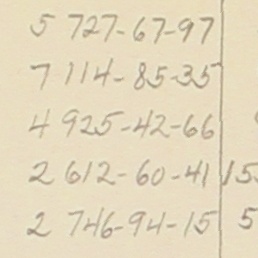 5 727-67-97
7 114-85-35
4 925-42-66
2 612-60-41 15
2 746-94-15 5